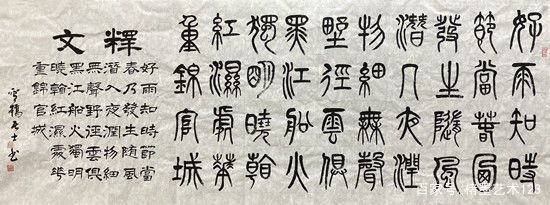 好雨知時
節當春乃
發生隨風
潛入夜潤
物細無聲
野徑雲俱
黑江船火
獨明曉看
紅濕處花
重錦官城
釋文
好雨知時節當
春乃發生随風
潛入夜潤物細
無聲野逕雲俱
黑江船火獨明
曉看紅濕處花
重錦官城
居士書
百家号/艺术123